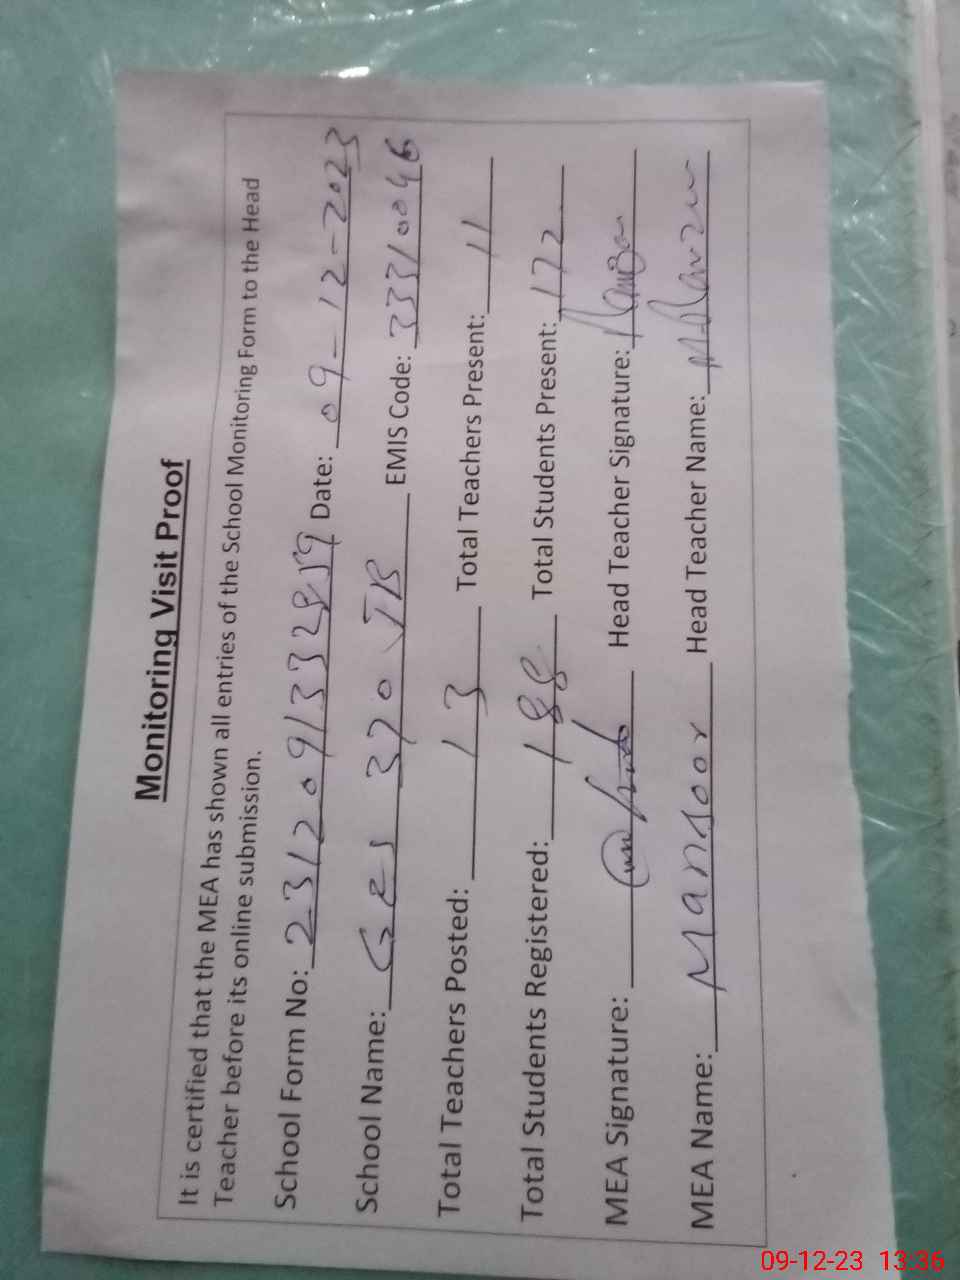 Monitoring Visit Proof
It is certified that the MEA has shown all entries of the School Monitoring Form to the Head
Teacher before its online submission.
School Form No: 2312091332859 Date: 09-12-2023
School Name: GES 370 JB EMIS Code: 33310046
Total Teachers Posted: 13 Total Teachers Present: 11
Total Students Registered: 188 Total Students Present: 172
MEA Signature: Head Teacher Signature:
MEA Name: Mansoor Head Teacher Name:
09-12-23 13:36